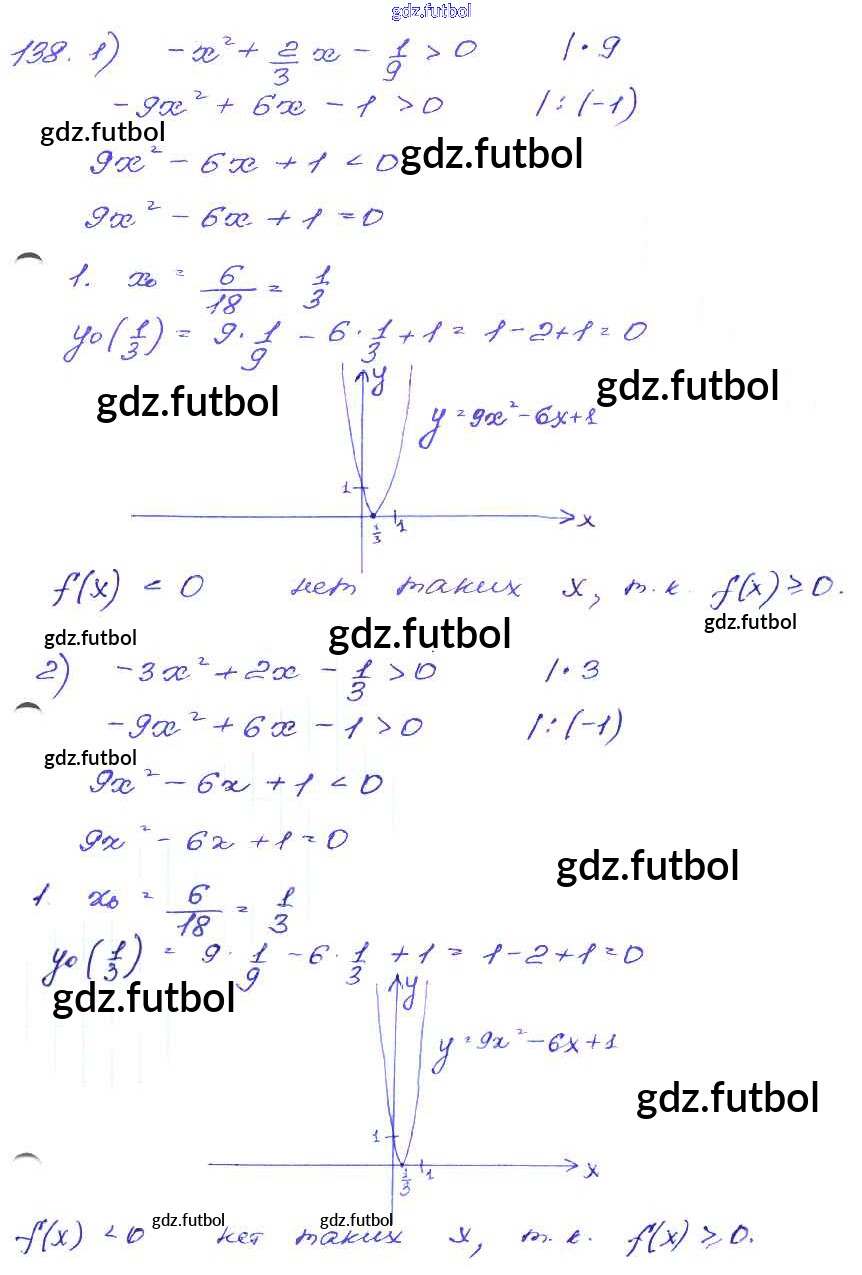 gdz.futbol
138. 1) -x² + 2/3 x - 1/9 > 0 | · 9
-9x² + 6x - 1 > 0 | : (-1)
gdz.futbol
9x² - 6x + 1 < 0 gdz.futbol
9x² - 6x + 1 = 0
1. x₀ = 6/18 = 1/3
y₀(1/3) = 9 · 1/9 - 6 · 1/3 + 1 = 1 - 2 + 1 = 0
gdz.futbol y gdz.futbol
y = 9x² - 6x + 1
1
1/3 1 x
f(x) < 0 нет таких x, т.к. f(x) ≥ 0.
gdz.futbol gdz.futbol gdz.futbol
2) -3x² + 2x - 1/3 > 0 | · 3
-9x² + 6x - 1 > 0 | : (-1)
gdz.futbol
9x² - 6x + 1 < 0
9x² - 6x + 1 = 0
gdz.futbol
1. x₀ = 6/18 = 1/3
y₀(1/3) = 9 · 1/9 - 6 · 1/3 + 1 = 1 - 2 + 1 = 0
gdz.futbol y
y = 9x² - 6x + 1
gdz.futbol
1
1/3 1 x
gdz.futbol gdz.futbol
f(x) < 0 нет таких x, т.к. f(x) ≥ 0.